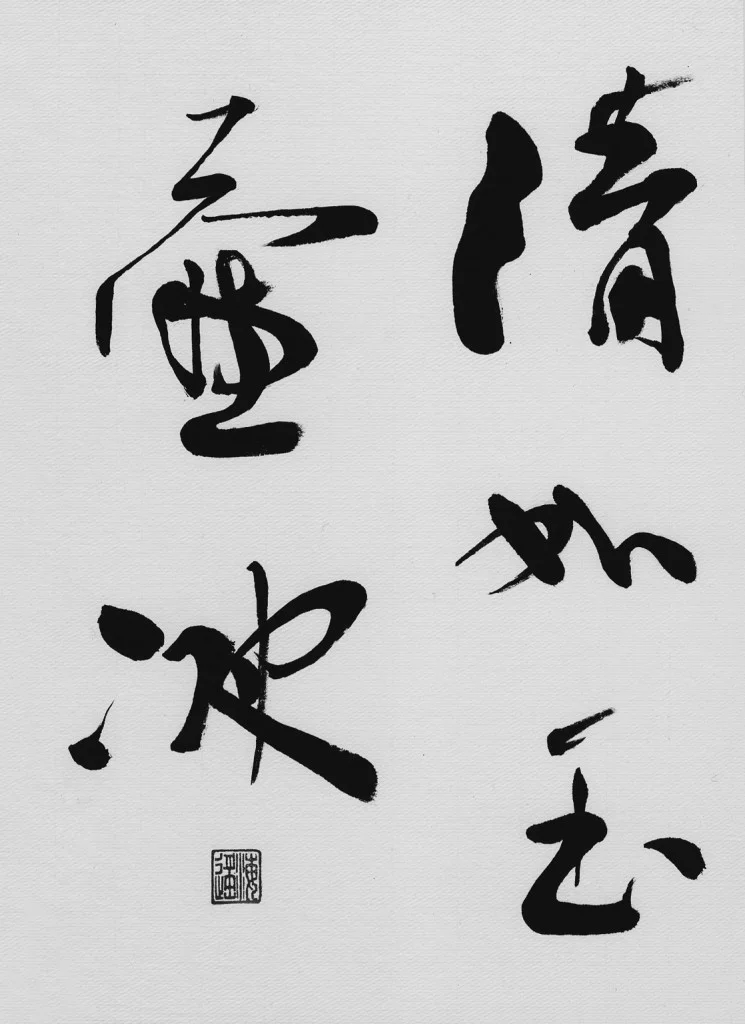 清如玉
壺冰